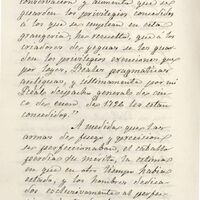 conservación y aumento que se
guarden los privilegios concedidos
á los que se emplean en esta
grangería, he resuelto, que á los
criadores de yeguas se les guar-
den los privilegios exenciones que
por leyes, Reales pragmáticas
antiguas, y ultimamente por mi
Real despacho general de cin-
co de enero de 1726 les estan
concedidos."
A medida que las
armas de fuego y precision
se perfeccionaban, el caballo
perdía su mérito, la estima
en que en otro tiempo habia
estado, y los hombres dedica-
dos esclusivamente al perfec-